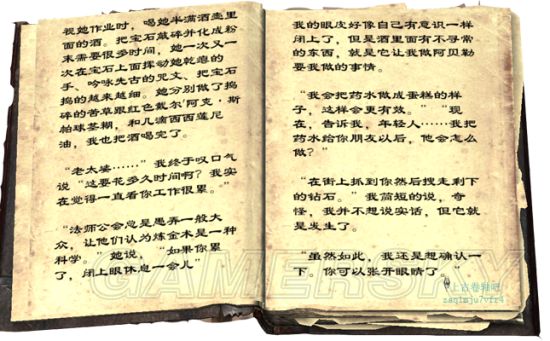 视她作业时，喝她半满酒壶里
面的酒。把宝石敲碎并化成粉
末需要很多时间，她一次又一
次在宝石上面挥动她乾瘪的
手、吟咏先古的咒文、把宝石
捣的越来越细。她分别做了捣
碎的苦草跟红色戴尔‘阿克·斯
帕球茎糊，和几滴西西莲尼
油，我也把酒喝完了。
“老太婆……”我终于叹口气
说“这要花多久时间啊？我实
在觉得一直看你工作很累。”
“法师公会总是愚弄一般大
众，让他们认为炼金术是一种
科学。”她说，“如果你累
了，闭上眼休息一会儿”
我的眼皮好像自己有意识一样
闭上了，但是酒里面有不寻常
的东西，就是它让我做阿贝勒
要我做的事情。
“我会把药水做成蛋糕的样
子，这样会更有效。”“现
在，告诉我，年轻人……我把
药水给你朋友以后，他会怎么
做？”
“在街上抓到你然后搜走剩下
的钻石。”我简短的说，奇
怪，我并不想说实话，但它就
是发生了。
“虽然如此，我还是想确认一
下。你可以张开眼睛了。”
上古卷轴吧
zaq1mju7vfr4
GAMERSKY